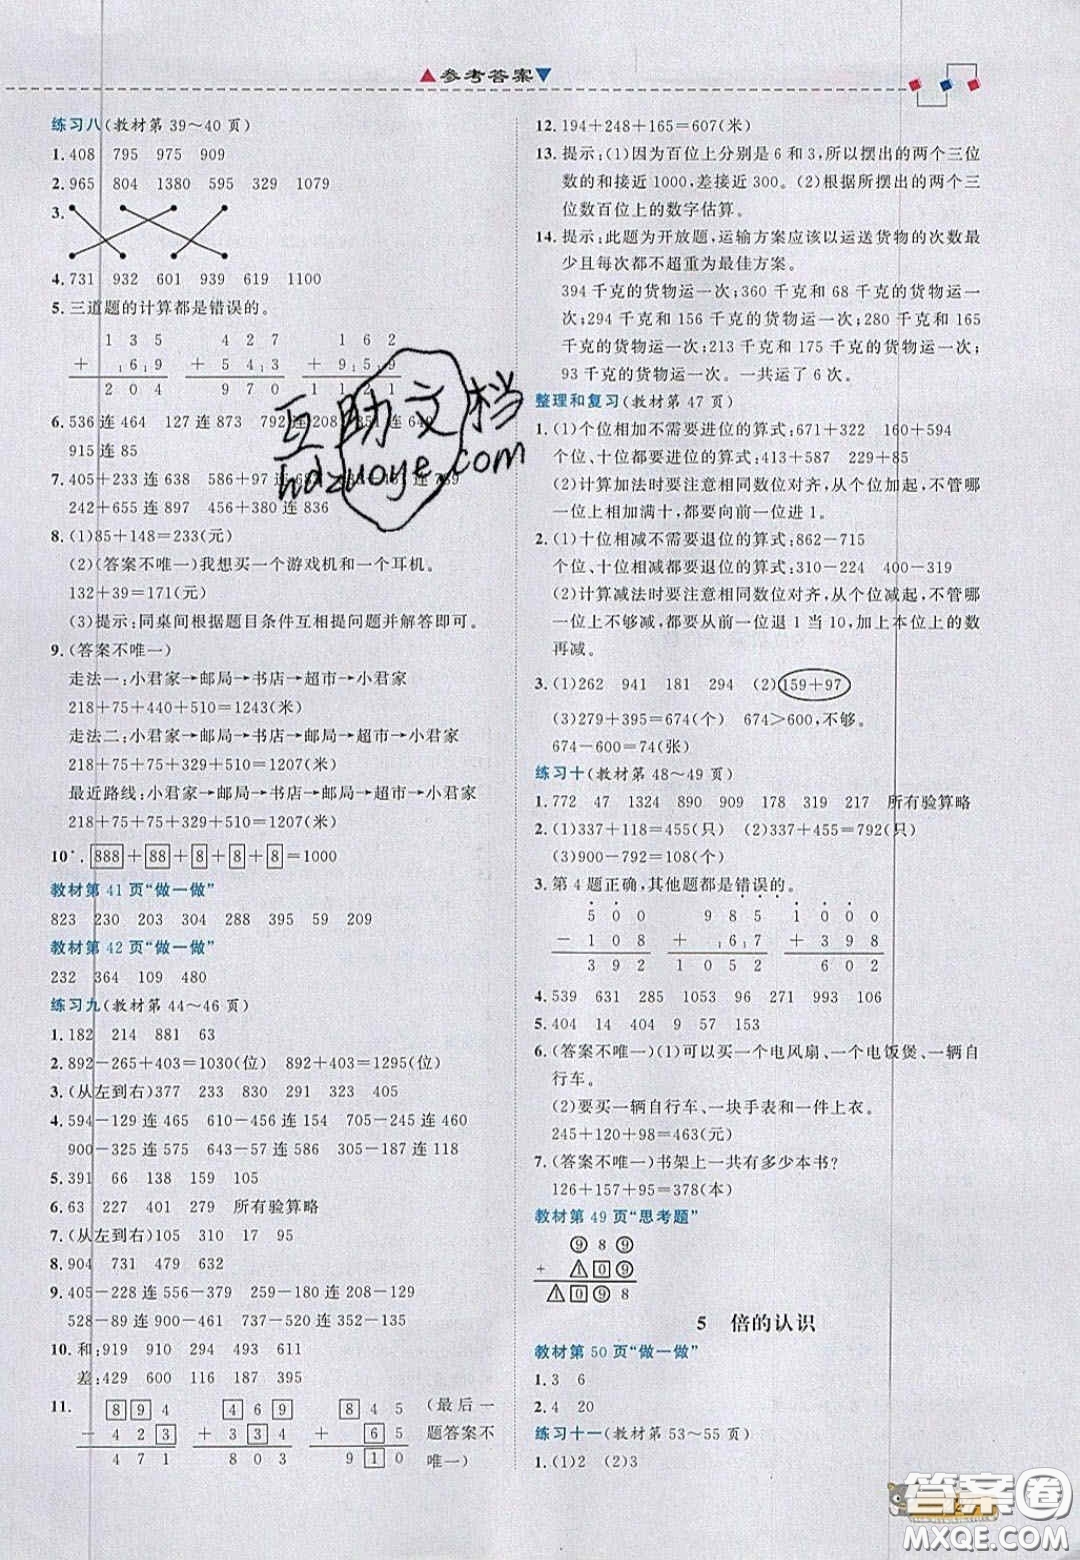 参考答案
练习八(教材第 39～40 页)
1. 408 795 975 909
2. 965 804 1380 595 329 1079
3.
4. 731 932 601 939 619 1100
5. 三道题的计算都是错误的。
1 3 5 4 2 7 1 6 2
+ 1 6 1 9 + 5 4 1 3 + 9 1 5 1 9
2 0 4 9 7 0 1 1 2 1
6. 536 连 464 127 连 873 792 连 208 连 649
915 连 85
7. 405+233 连 638 586+97 连
242+655 连 897 456+380 连 836
8. (1)85+148=233(元)
(2)(答案不唯一)我想买一个游戏机和一个耳机。
132+39=171(元)
(3)提示:同桌间根据题目条件互相提问题并解答即可。
9. (答案不唯一)
走法一:小君家→邮局→书店→超市→小君家
218+75+440+510=1243(米)
走法二:小君家→邮局→书店→邮局→超市→小君家
218+75+75+329+510=1207(米)
最近路线:小君家→邮局→书店→邮局→超市→小君家
218+75+75+329+510=1207(米)
10*. 888+88+8+8+8=1000
教材第 41 页“做一做”
823 230 203 304 288 395 59 209
教材第 42 页“做一做”
232 364 109 480
练习九(教材第 44～46 页)
1. 182 214 881 63
2. 892-265+403=1030(位) 892+403=1295(位)
3. (从左到右)377 233 830 291 323 405
4. 594-129 连 465 610-456 连 154 705-245 连 460
900-325 连 575 643-57 连 586 305-187 连 118
5. 391 66 138 159
6. 63 227 401 279 所有验算略
7. (从左到右)105 310 17 95
8. 904 731 479 652
9. 405-228 连 556-379 259-180 连 208-129
528-89 连 900-461 624-407 连 352-135
10. 和:919 910 294 493 881
差:429 660 116 187 395
11. 8 9 4 4 6 9 8 4 5 (最后一
- 4 2 3 + 3 3 4 + 6 5 题答案不
4 7 1 8 0 3 9 1 0 唯一)
12. 194+248+165=607(米)
13. 提示:(1)因为百位上分别是 6 和 3,所以摆出的两个三位
数的和接近 1000,差接近 300。(2)根据所摆出的两个三
位数百位上的数字估算。
14. 提示:此题为开放题,运输方案应该以运送货物的次数最
少且每次都不超重为最佳方案。
394 千克的货物运一次;360 千克和 68 千克的货物运一
次;294 千克和 156 千克的货物运一次;280 千克和 165
千克的货物运一次;213 千克和 175 千克的货物运一次;
93 千克的货物运一次。一共运了 6 次。
整理和复习(教材第 47 页)
1. (1)个位相加不需要进位的算式:671+322 160+594
个位、十位都要进位的算式:413+587 229+85
(2)计算加法时要注意相同数位对齐,从个位加起,不管哪
一位上相加满十,都要向前一位进 1。
2. (1)十位相减不需要退位的算式:862-715
个位、十位相减都要退位的算式:310-224 400-319
(2)计算减法时要注意相同数位对齐,从个位减起,不管哪
一位上不够减,都要从前一位退 1 当 10,加上本位上的数
再减。
3. (1)262 941 181 294 (2)159+97
(3)279+395=674(个) 674>600,不够。
674-600=74(张)
练习十(教材第 48～49 页)
1. 772 47 1324 890 909 178 319 217 所有验算略
2. (1)337+118=455(只) (2)337+455=792(只)
(3)900-792=108(只)
3. 第 4 题正确,其他题都是错误的。
5 0 0 9 8 5 1 0 0 0
- 1 0 8 + 1 6 1 7 - 3 2 9
3 9 2 1 0 5 2 6 7 1
4. 539 631 285 1053 96 271 993 106
5. 404 14 404 9 57 153
6. (答案不唯一)(1)可以买一个电风扇、一个电饭煲、一辆自
行车。
(2)要买一辆自行车、一块手表和一件上衣。
245+120+98=463(元)
7. (答案不唯一)书架上一共有多少本书?
126+157+95=378(本)
教材第 49 页“思考题”
9 8 9
+ 1 0 9
1 0 9 8
5 倍的认识
教材第 50 页“做一做”
1. 3 6
2. 4 20
练习十一(教材第 53～55 页)
1. (1)2 (2)3
互助文档
hdzuoye.com
答案圈
MXQE.COM